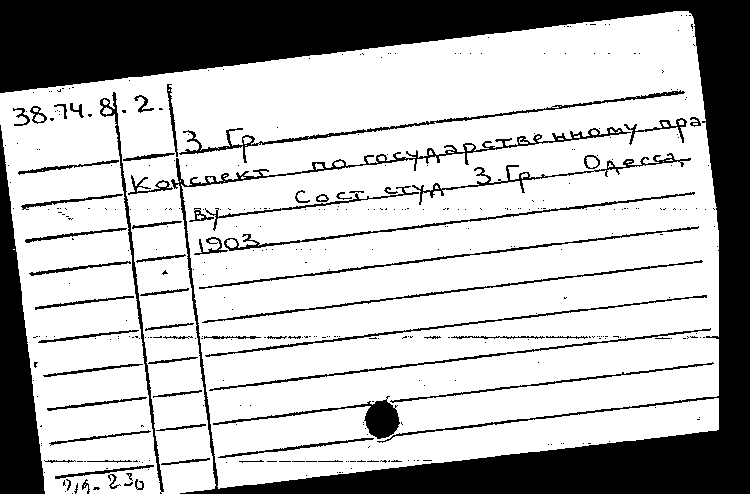 38.74.8.2.
З. Гр.
Конспект по государственному пра-
ву. Сост. студ. З. Гр. Одесса,
1903.